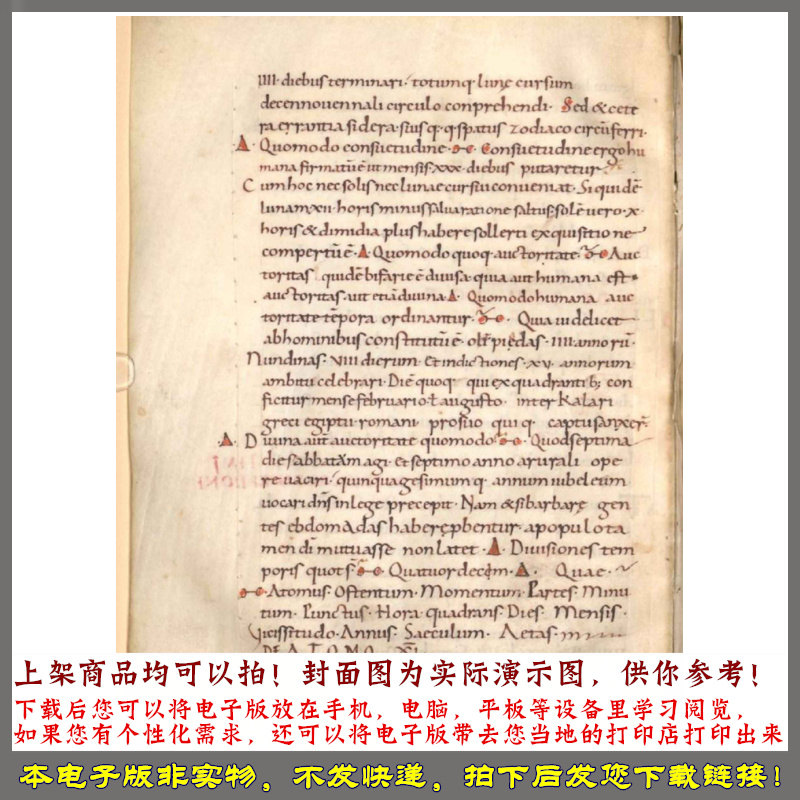 IIII· diebus terminari· totumq· lunę cursum
decennouennali circulo conprehendi· Sed & cete
ra errantia sidera· suis q·q· spatus zodiaco circū ferri·
Δ· Quomodo consuetudine· Consuetudine ergo hu
mana firmatū ē ut mensis· xxx· diebus putaretur·
Cum hoc nec solis nec lunae cursui conueniat· Si quidē
lunam xii· horis minus salua ratione saltus· solē uero· x·
horis & dimidia plus habere sollerti exquisitione
compertū ē· Δ Quomodo quoq· auctoritate· Auc
toritas quidē bifarie ē diuisa· quia aut humana est·
auctoritas· aut etiā diuina· Δ· Quomodo humana auc
toritate tēpora ordinantur· Quia uidelicet
ab hominibus constitutū ē· olīpiadas· IIII· annorū·
Nundinas· VIIII dierum· Et indictiones· xv· annorum
ambitu celebrari· Diē quoq· qui ex quadranti b; con
ficitur mense februario ł augusto· inter Kalari
greci egiptii romani pro suo qui q·
Δ· Diuina aūt auctoritate quomodo· Quod septima
die sabbatū agi· et septimo anno a rurali ope
re uacari· quinquagesimum q· annum iubeleum
uocari dn̄s in lege precepit· Nam & si barbarę gen
tes ebdomadas habere ꝓbentur· a populo ta
men dī mutuasse non latet· Δ Diuisiones tem
poris quot s̄· Quatuordecim· Δ· Quae·
Atomus· Ostentum· Momentum· Partes· Minu
tum· Punctus· Hora· quadrans· Dies· Mensis·
Vicissitudo· Annus· Saeculum· Aetas·
DE ATOMO
上架商品均可以拍！封面图为实际演示图，供你参考！
下载后您可以将电子版放在手机，电脑，平板等设备里学习阅览，
如果您有个性化需求，还可以将电子版带去您当地的打印店打印出来
本电子版非实物，不发快递，拍下后发您下载链接！